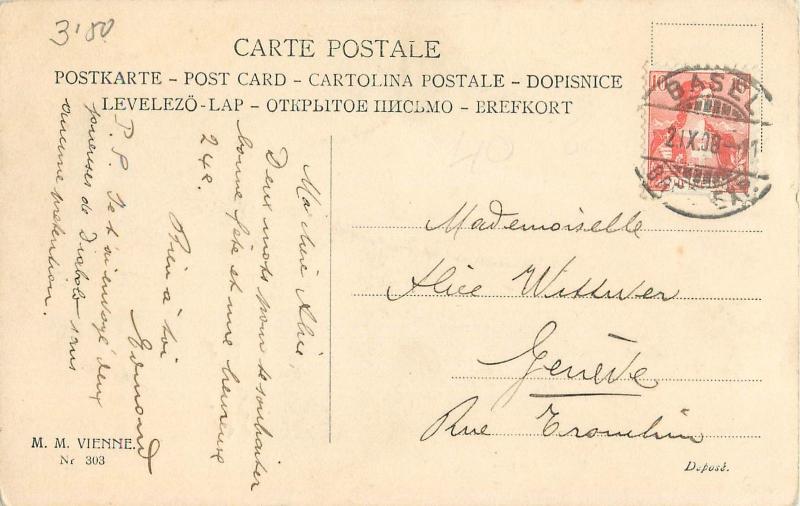 3'80
CARTE POSTALE
POSTKARTE – POST CARD – CARTOLINA POSTALE – DOPISNICE
LEVELEZŐ-LAP – ОТКРЫТОЕ ПИСЬМО – BREFKORT
BASEL
2.IX.08-11
10
Ma chère Alice,
Deux mots pour te souhaiter
bonne fête et une heureuse
24e.
Bien à toi
Edmond
P.S. Je t'ai envoyé deux
joueuses de Diabolo sans
aucune prétention.
Mademoiselle
Alice Wittwer
Genève
Rue Tronchin
M. M. VIENNE.
Nr 303
Deposé.